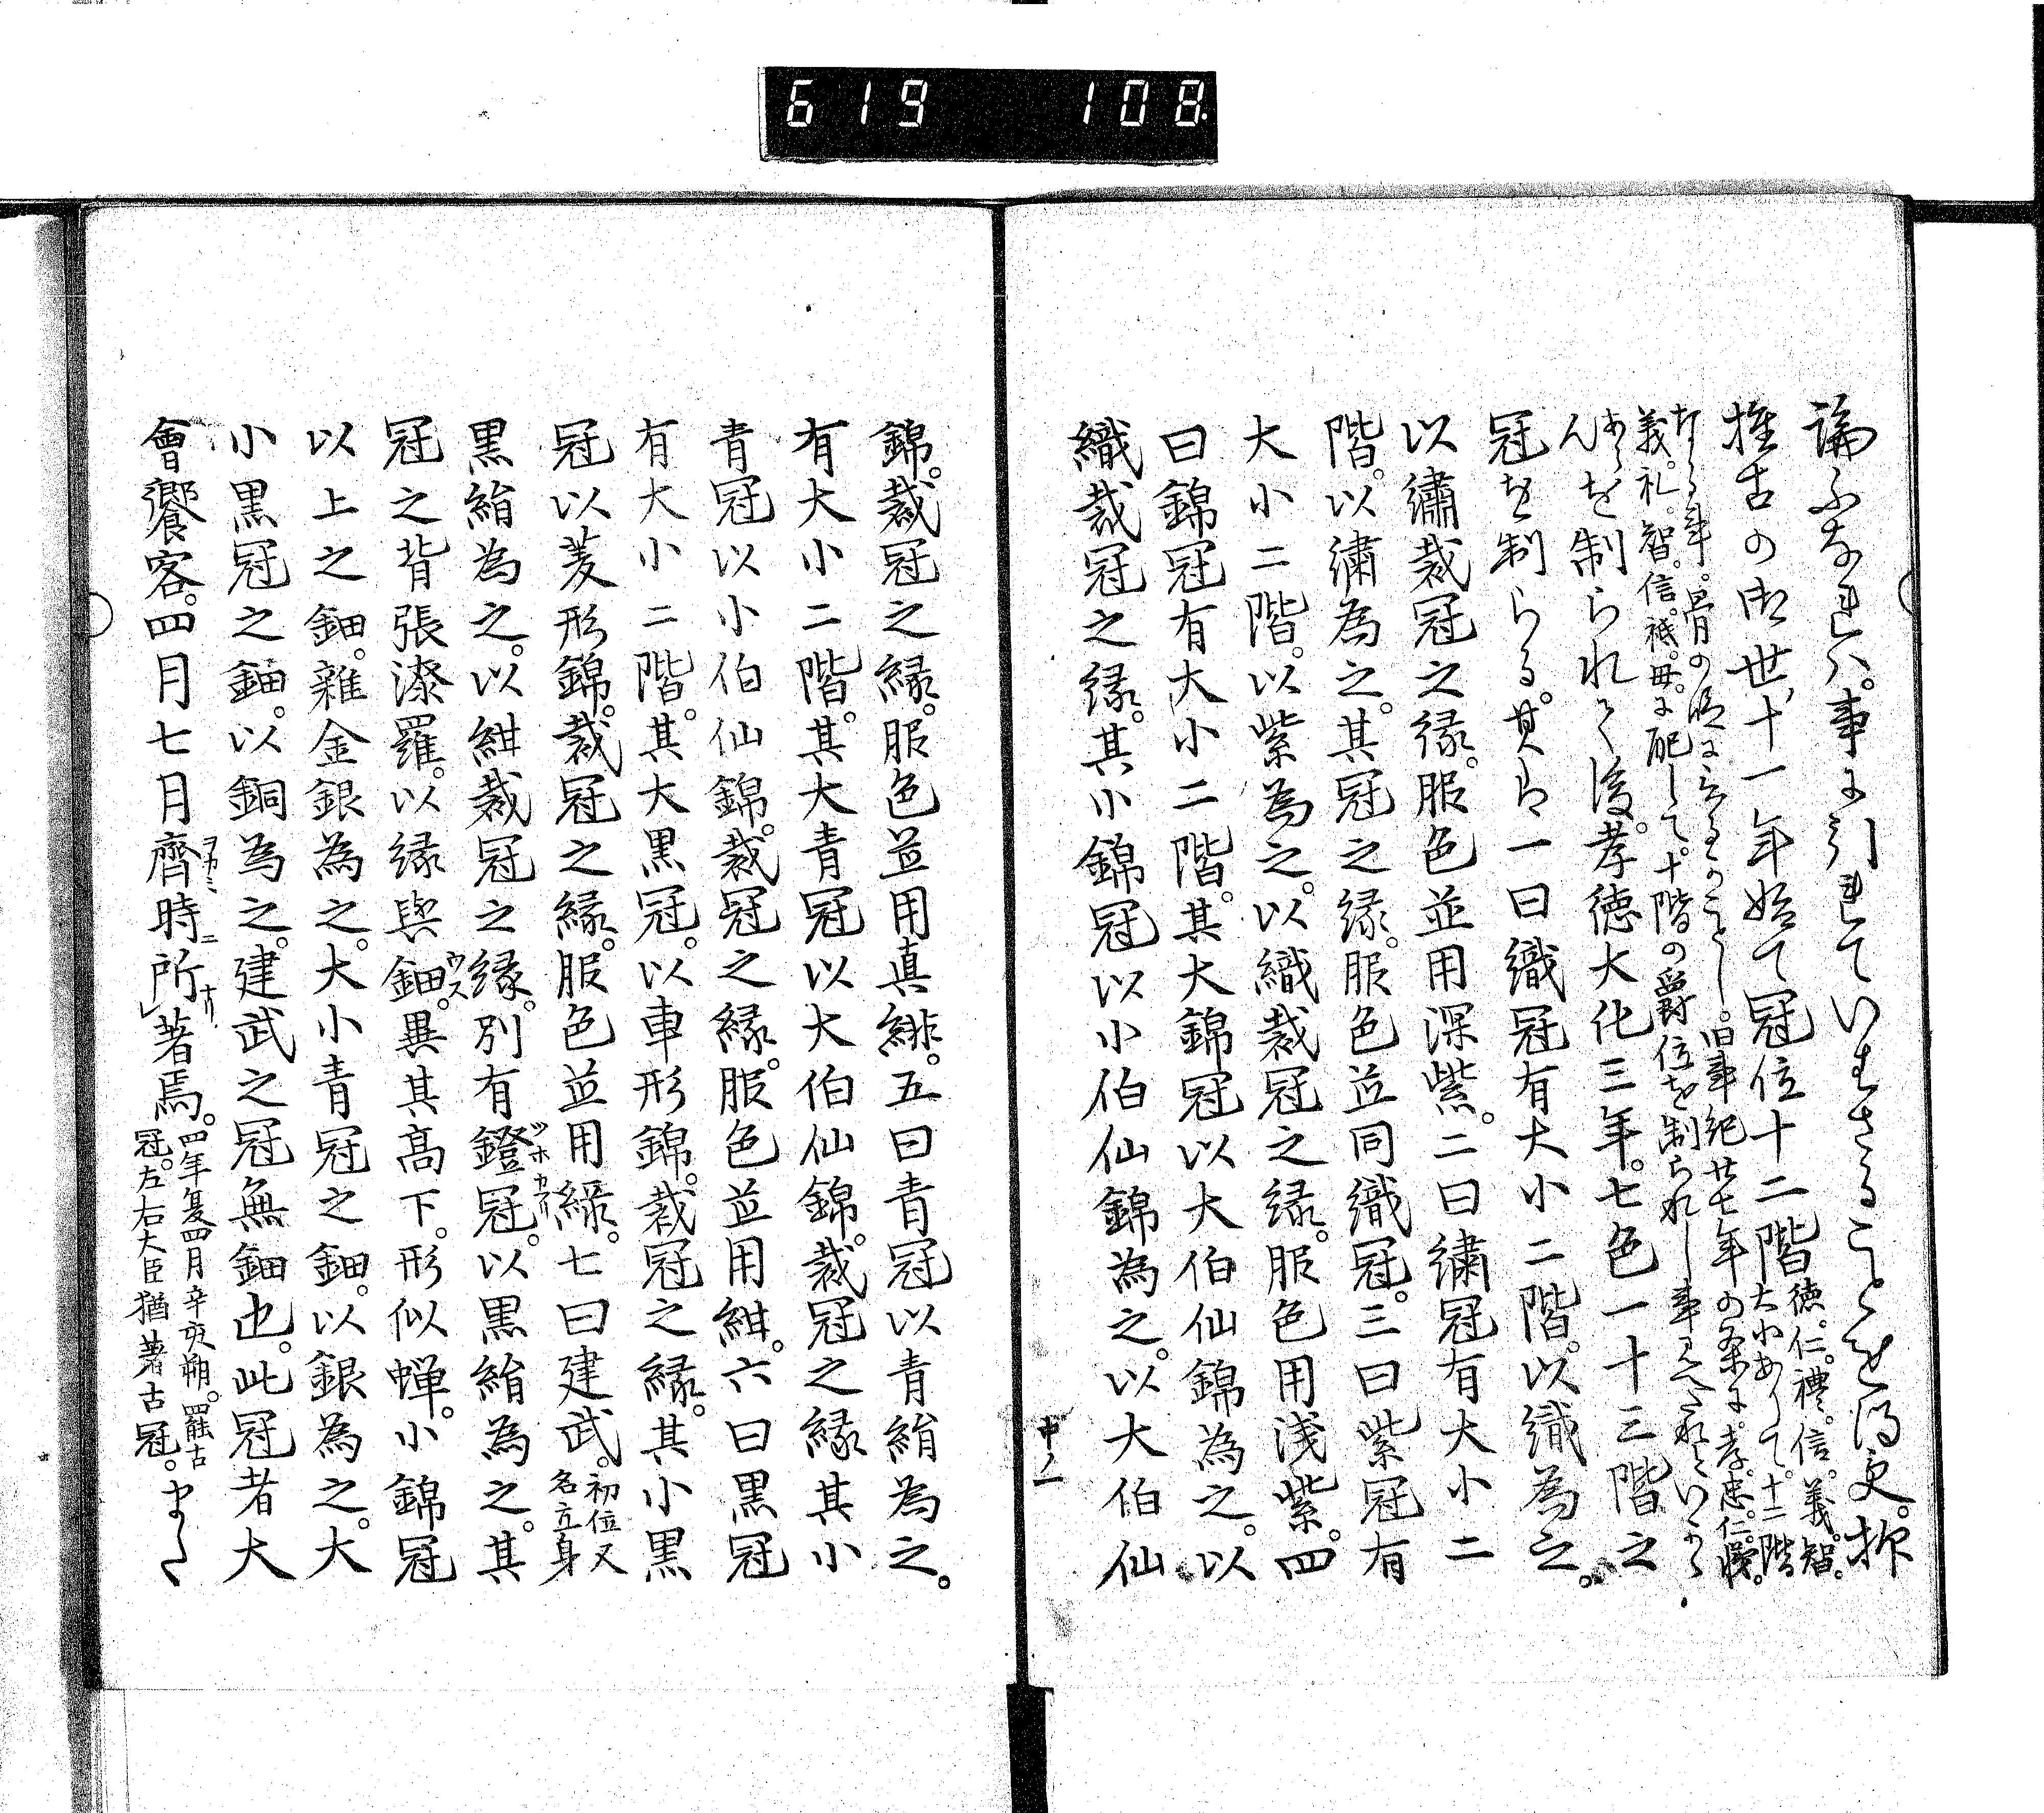 619 108
論ふなれハ。事に引れていはさることを得更。抑
推古の御世、十一年始て冠位十二階
徳。仁。禮。信。義。智。
大小ありて。十二階
なる事。
の條に
旧事紀廿七年の条に。孝。忠。仁。
義。礼。智。信。祗。母。に配して。十階の爵位を制られし事
を制られて後。孝徳大化三年。七色一十三階之
冠を制らる。其は一曰織冠有大小二階。以織為之。
以繡裁冠之縁。服色並用深紫。二曰繡冠有大小二
階。以繡為之。其冠之縁。服色並同織冠。三曰紫冠有
大小二階。以紫為之。以織裁冠之縁。服色用浅紫。四
曰錦冠有大小二階。其大錦冠以大伯仙錦為之。以
織裁冠之縁。其小錦冠以小伯仙錦為之。以大伯仙
申ノ一
錦。裁冠之縁。服色並用真緋。五曰青冠以青絹為之。
有大小二階。其大青冠以大伯仙錦。裁冠之縁其小
青冠以小伯仙錦。裁冠之縁。服色並用紺。六曰黒冠
有大小二階。其大黒冠。以車形錦。裁冠之縁。其小黒
冠以菱形錦。裁冠之縁。服色並用緑。七曰建武。初位又
名立身
黒絹為之。以紺裁冠之縁。別有鐙冠。以黒絹為之。其
ツホカフリ
冠之背張漆羅。以縁與鈿。異其高下。形似蝉。小錦冠
ウス
以上之鈿。雜金銀為之。大小青冠之鈿。以銀為之。大
小黒冠之鈿。以銅為之。建武之冠無鈿也。此冠者大
會饗客。四月七月齊時所著焉。四年夏四月辛亥朔。罷古
冠。左右大臣猶著古冠。
ヲカミニ ナリ